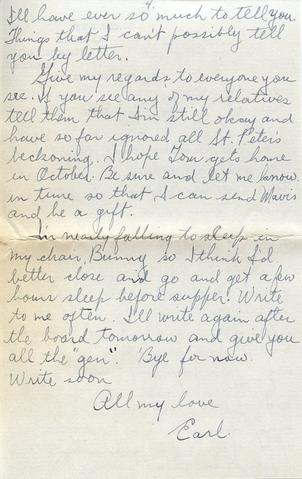 4.
I'll have ever so much to tell you
Things that I can't possibly tell
you by letter.
Give my regards to everyone you
see. If you see any of my relatives
tell them that I'm still okay and
have so far ignored all St. Peters
beckoning. I hope Tom gets home
in October. Be sure and let me know
in time so that I can send Mavis
and he a gift.
I'm nearly falling to sleep in
my chair, Bunny so I think I'd
better close and go and get a few
hours sleep before supper. Write
to me often. I'll write again after
the board tomorrow and give you
all the "gen". 'Bye for now
Write soon
All my love
Earl.